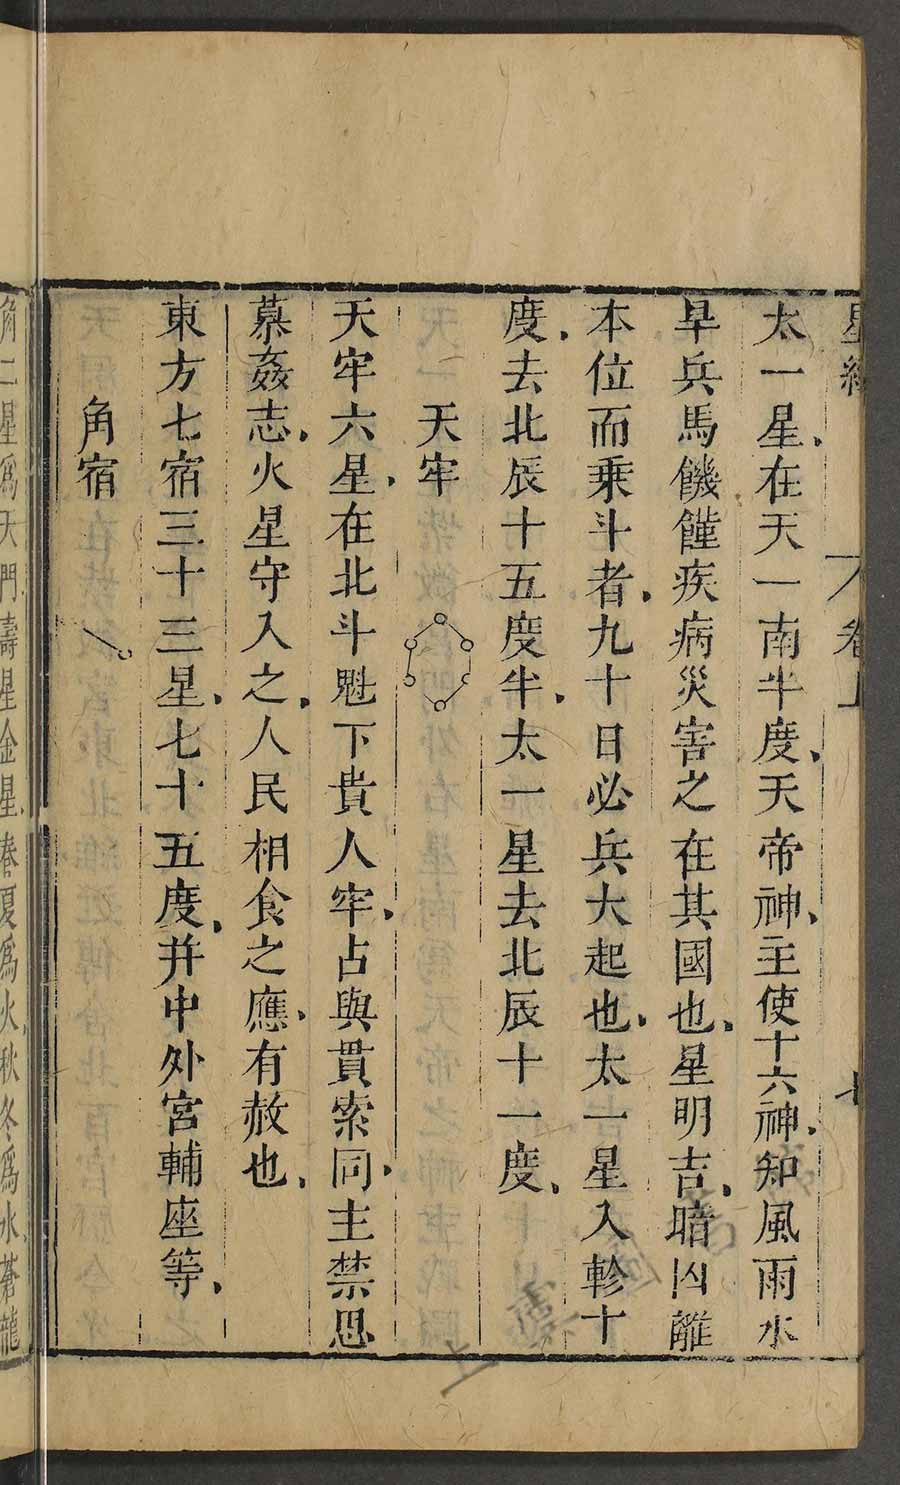 星經 卷上 七
太一星在天一南半度天帝神主使十六神知風雨水
旱兵馬饑饉疾病災害之在其國也星明吉暗凶離
本位而乗斗者九十日必兵大起也太一星入軫十
度去北辰十五度半太一星去北辰十一度
天牢
天牢六星在北斗魁下貴人牢占與貫索同主禁思
慕姦志火星守入之人民相食之應有赦也
東方七宿三十三星七十五度并中外宮輔座等
角宿
角二星為天門壽星金星春夏為火秋冬為水蒼龍